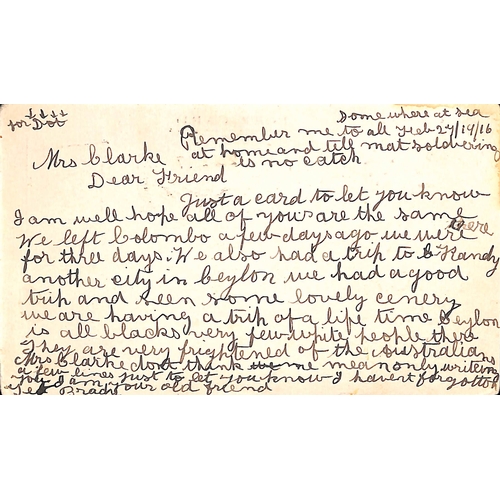 Somewhere at sea
for Dot
Remember me to all Feb 27/14/16
at home and tell mat soldering
Mrs Clarke is no catch
Dear Friend
Just a card to let you know
I am well hope all of you are the same
We left Colombo a few days ago we were there
for three days. We also had a trip to Kandy
another city in Ceylon we had a good
trip and seen some lovely cenery
we are having a trip of a life time Ceylon
is all blacks very few white people there
They are very frightened of the Australians
Mrs Clarke dont thank me mean only writeing
a few lines just to let you know I havent forgotton
you I am your old friend
Ted Brady